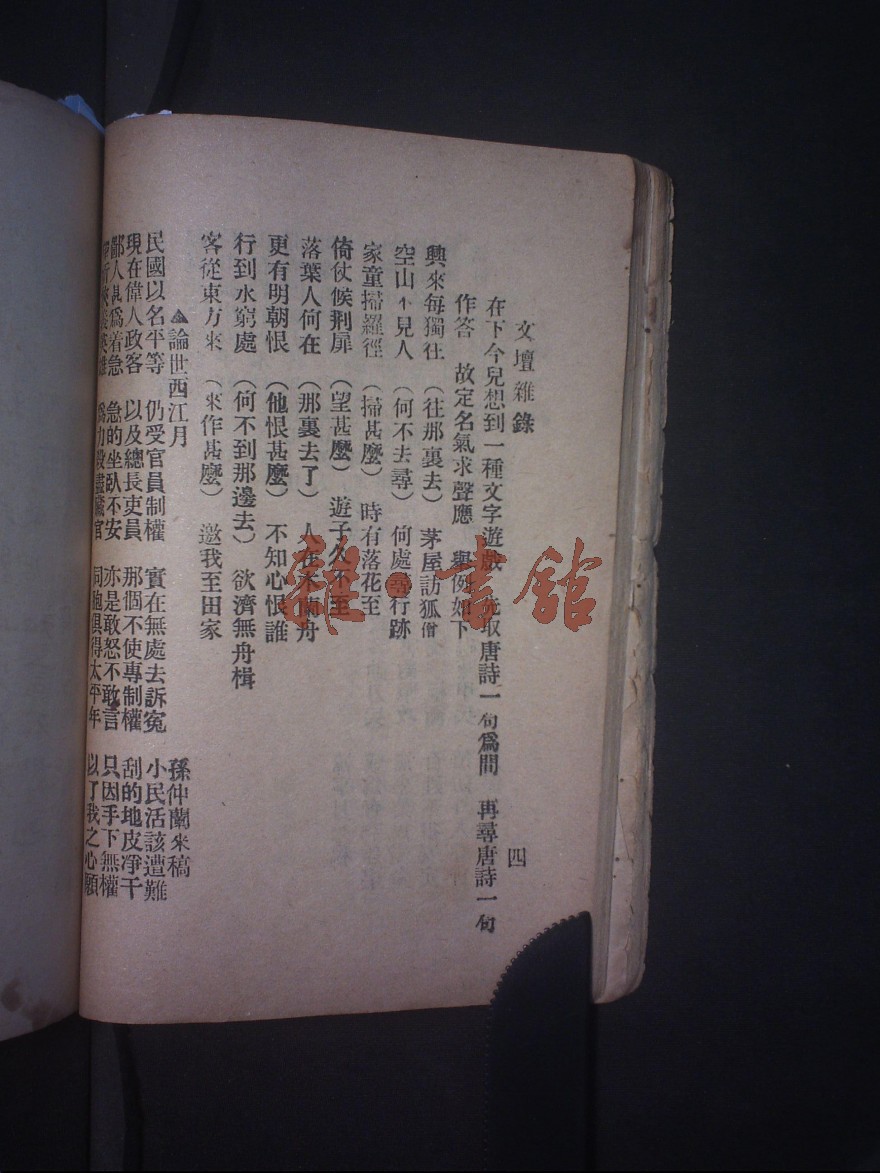 文壇雜錄 四
在下今兒想到一種文字遊戲 先取唐詩一句爲問 再尋唐詩一句
作答 故定名氣求聲應 舉例如下
興來每獨往 (往那裏去) 茅屋訪狐僧
空山不見人 (何不去尋) 何處尋行跡
家童掃羅徑 (掃甚麼) 時有落花至
倚仗候荆扉 (望甚麼) 遊子久不至
落葉人何在 (那裏去了) 人在木蘭舟
更有明朝恨 (他恨甚麼) 不知心恨誰
行到水窮處 (何不到那邊去) 欲濟無舟楫
客從東方來 (來作甚麼) 邀我至田家
▲論世西江月 孫仲蘭來稿
民國以名平等 仍受官員制權 實在無處去訴寃 小民活該遭難
現在偉人政客 以及總長吏員 那個不使專制權 刮的地皮凈干
鄙人 爲着急 急的坐卧不安 亦是敢怒不敢言 只因手下無權
盡 官 同胞俱得太平年 以了我之心願
雜·書館